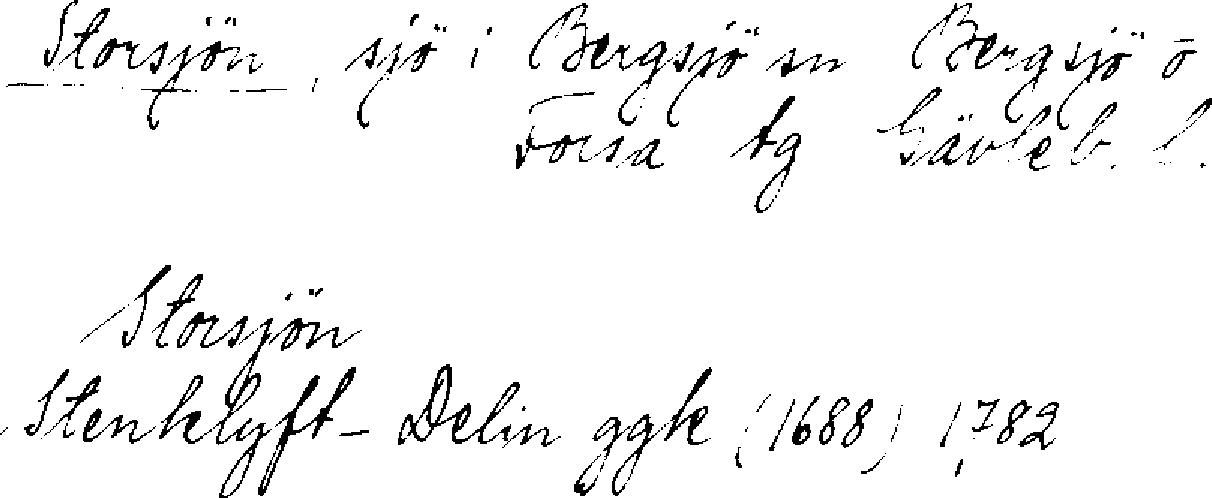 Storsjön, sjö i Bergsjö sn Bergsjö o
Forsa tg Gävleb. l.
Storsjön
Stenklyft-Delin ggk (1688) 1782